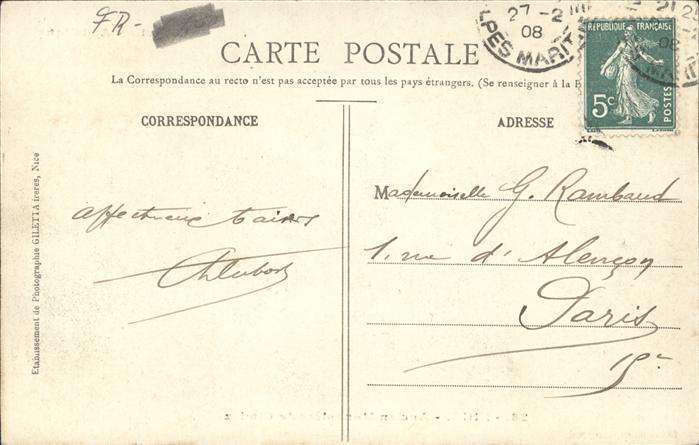 FR-
27-2
08
LPES MARIT
21
08
MARIT
RÉPUBLIQUE FRANÇAISE
5c
POSTES
CARTE POSTALE
La Correspondance au recto n'est pas acceptée par tous les pays étrangers. (Se renseigner à la
CORRESPONDANCE
ADRESSE
Etablissement de Photographie GILETTA frères, Nice
affectueux baisers
Mademoiselle G. Rambaud
1, rue d'Alençon
Paris
15e